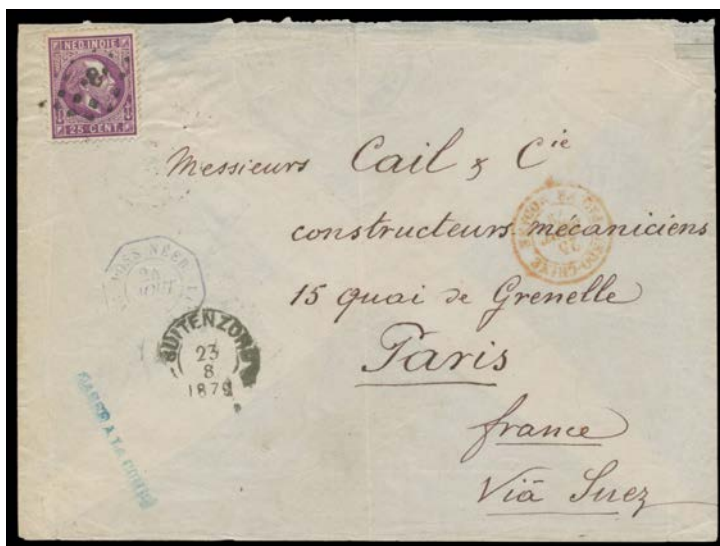 NED. INDIE
8
25 CENT.
Messieurs Cail & Cie
constructeurs mécaniciens
15 quai de Grenelle
Paris
france
Viâ Suez
POSS. NÉER.
24
AOUT
BUITENZORG
23
8
1879